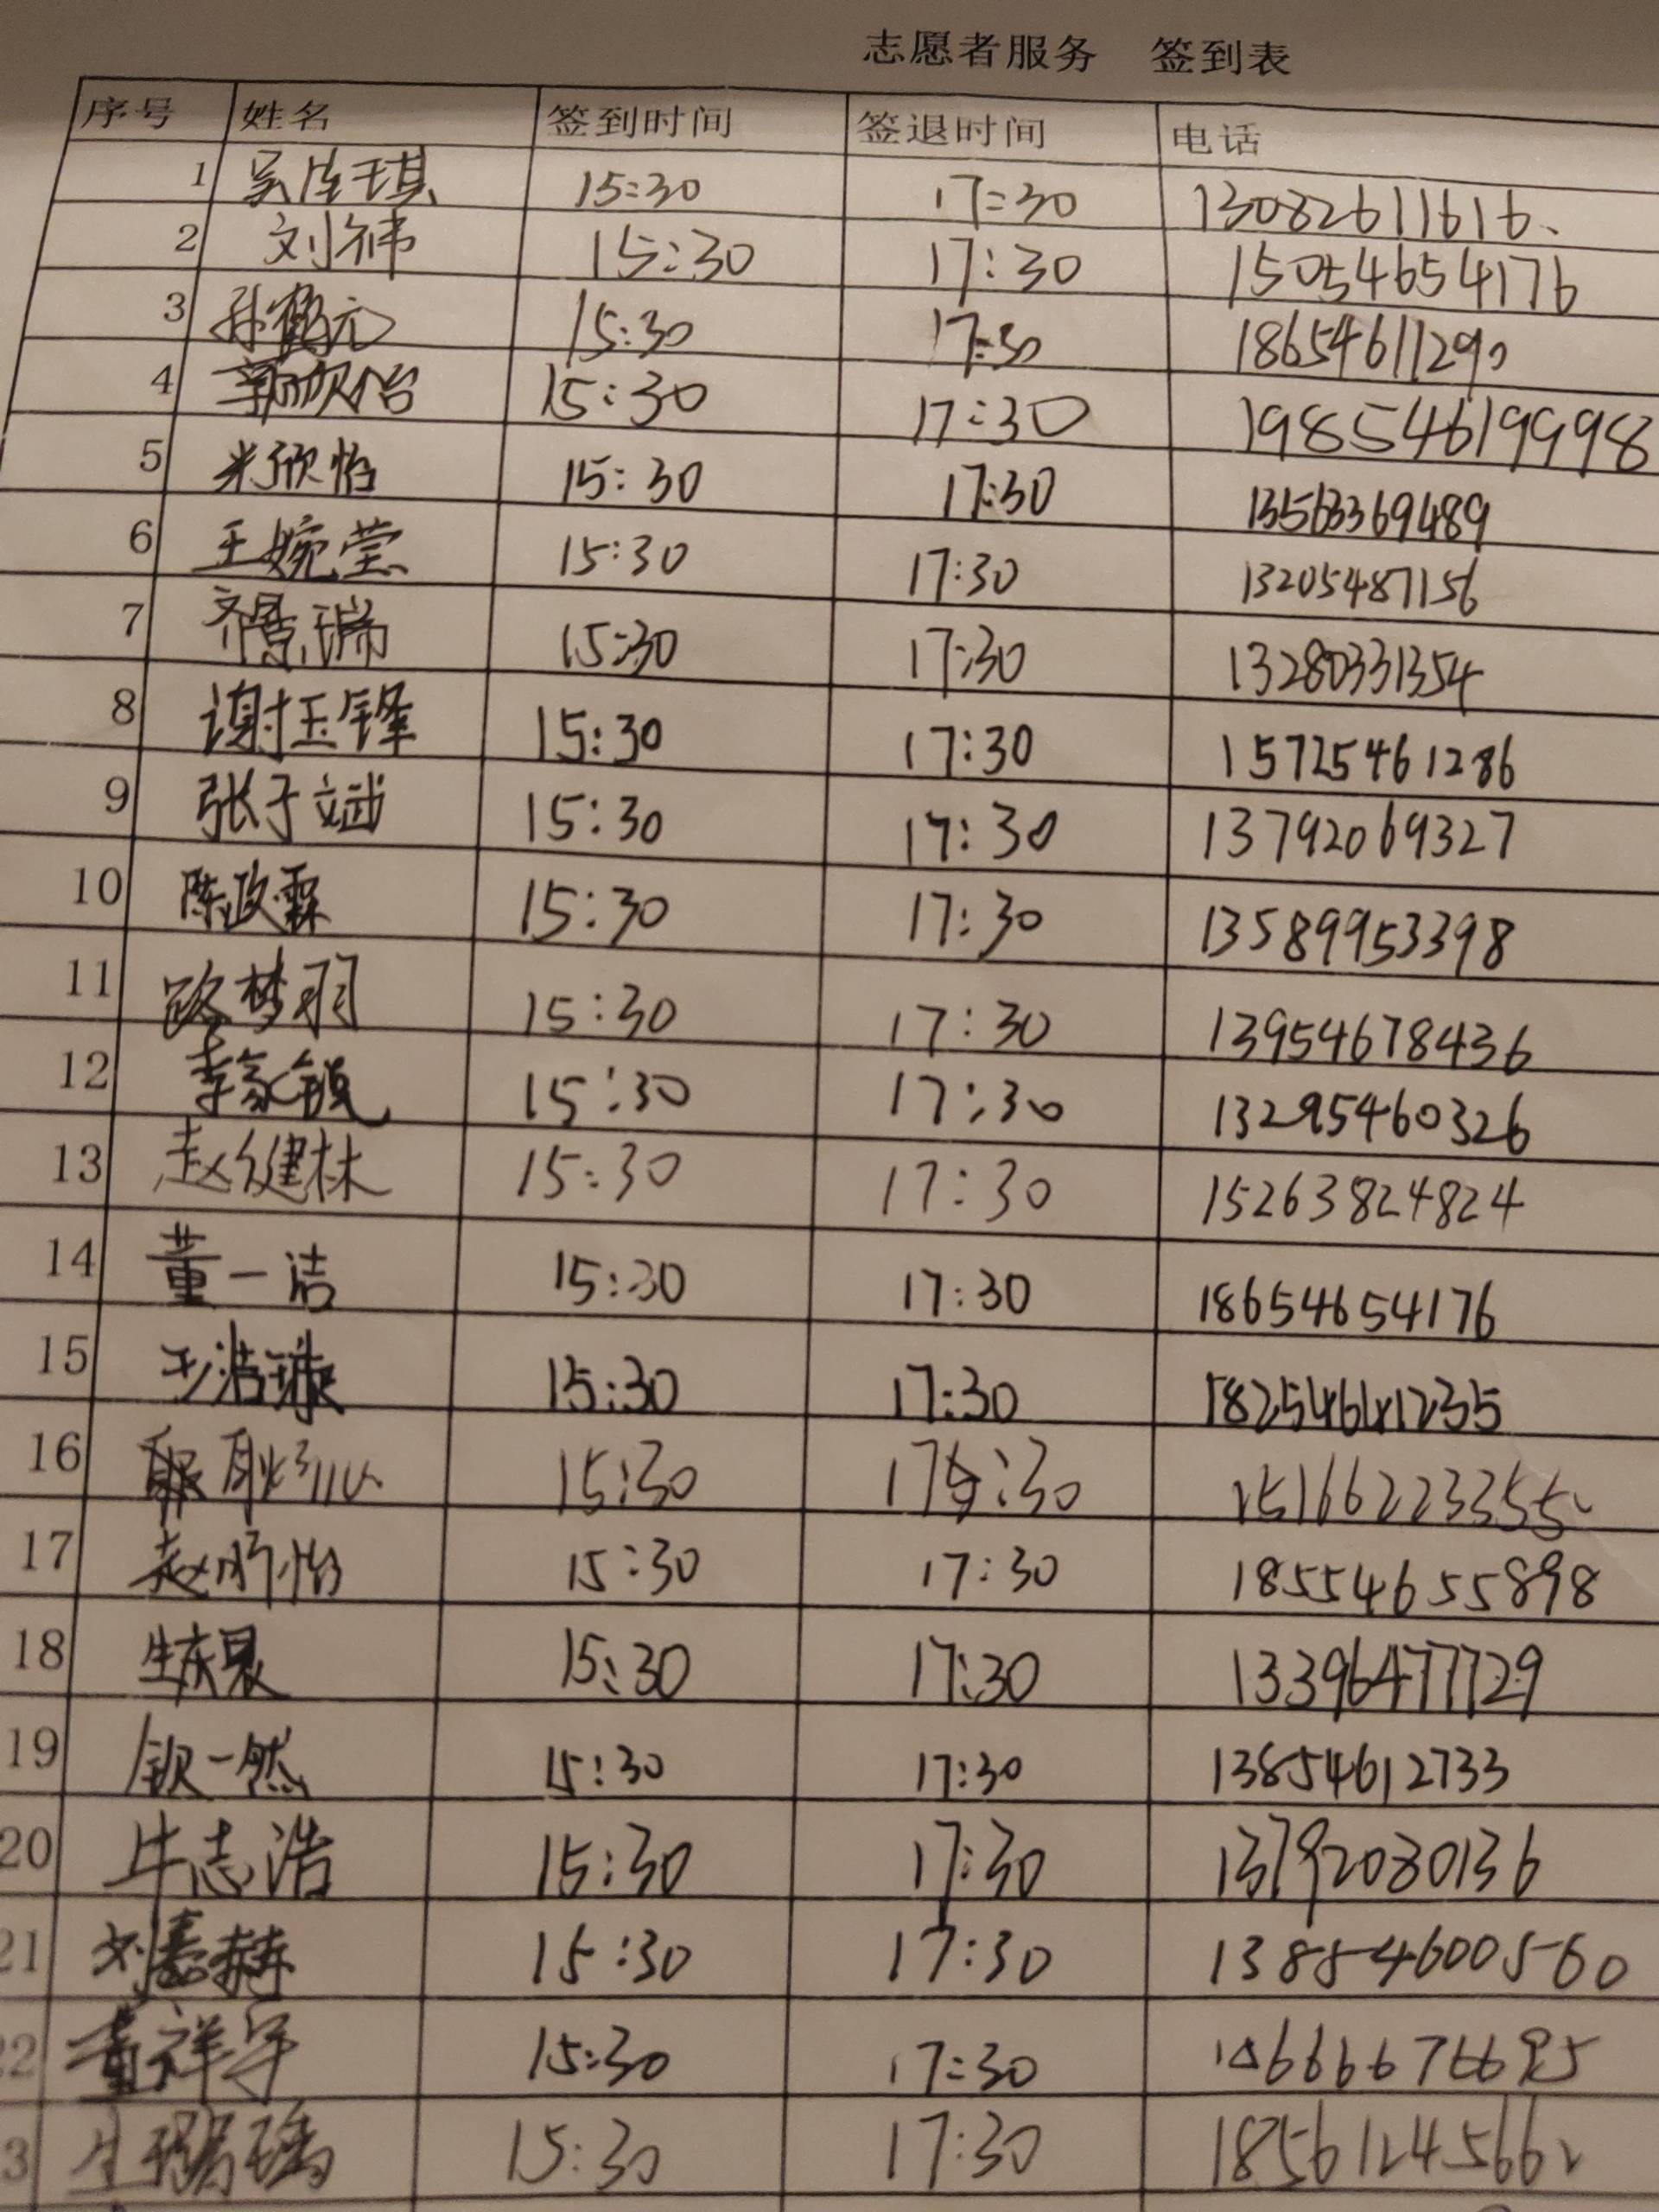 志愿者服务 签到表
序号 姓名 签到时间 签退时间 电话
1 15:30 17:30 13082611616
2 刘祎 15:30 17:30 15054654176
3 孙鹤元 15:30 17:30 18654611290
4 郭欣怡 15:30 17:30 198546199998
5 米欣怡 15:30 17:30 13563369489
6 王婉莹 15:30 17:30 13205487156
7 齐景瑞 15:30 17:30 13280331354
8 谢玉锋 15:30 17:30 15725461286
9 张子斌 15:30 17:30 13792069327
10 陈政霖 15:30 17:30 13589953398
11 路梦羽 15:30 17:30 13954678436
12 李家锐 15:30 17:30 13295460326
13 赵健林 15:30 17:30 15263824824
14 董一洁 15:30 17:30 18654654176
15 王浩璇 15:30 17:30
16 15:30 17:30 15166223355
17 赵昕怡 15:30 17:30 18554655898
18 生东泉 15:30 17:30 13396477729
19 钦一然 15:30 17:30 13854612733
20 牛志浩 15:30 17:30 13792080136
21 15:30 17:30 13854600560
22 董祥宇 15:30 17:30
3 15:30 17:30 18561245662